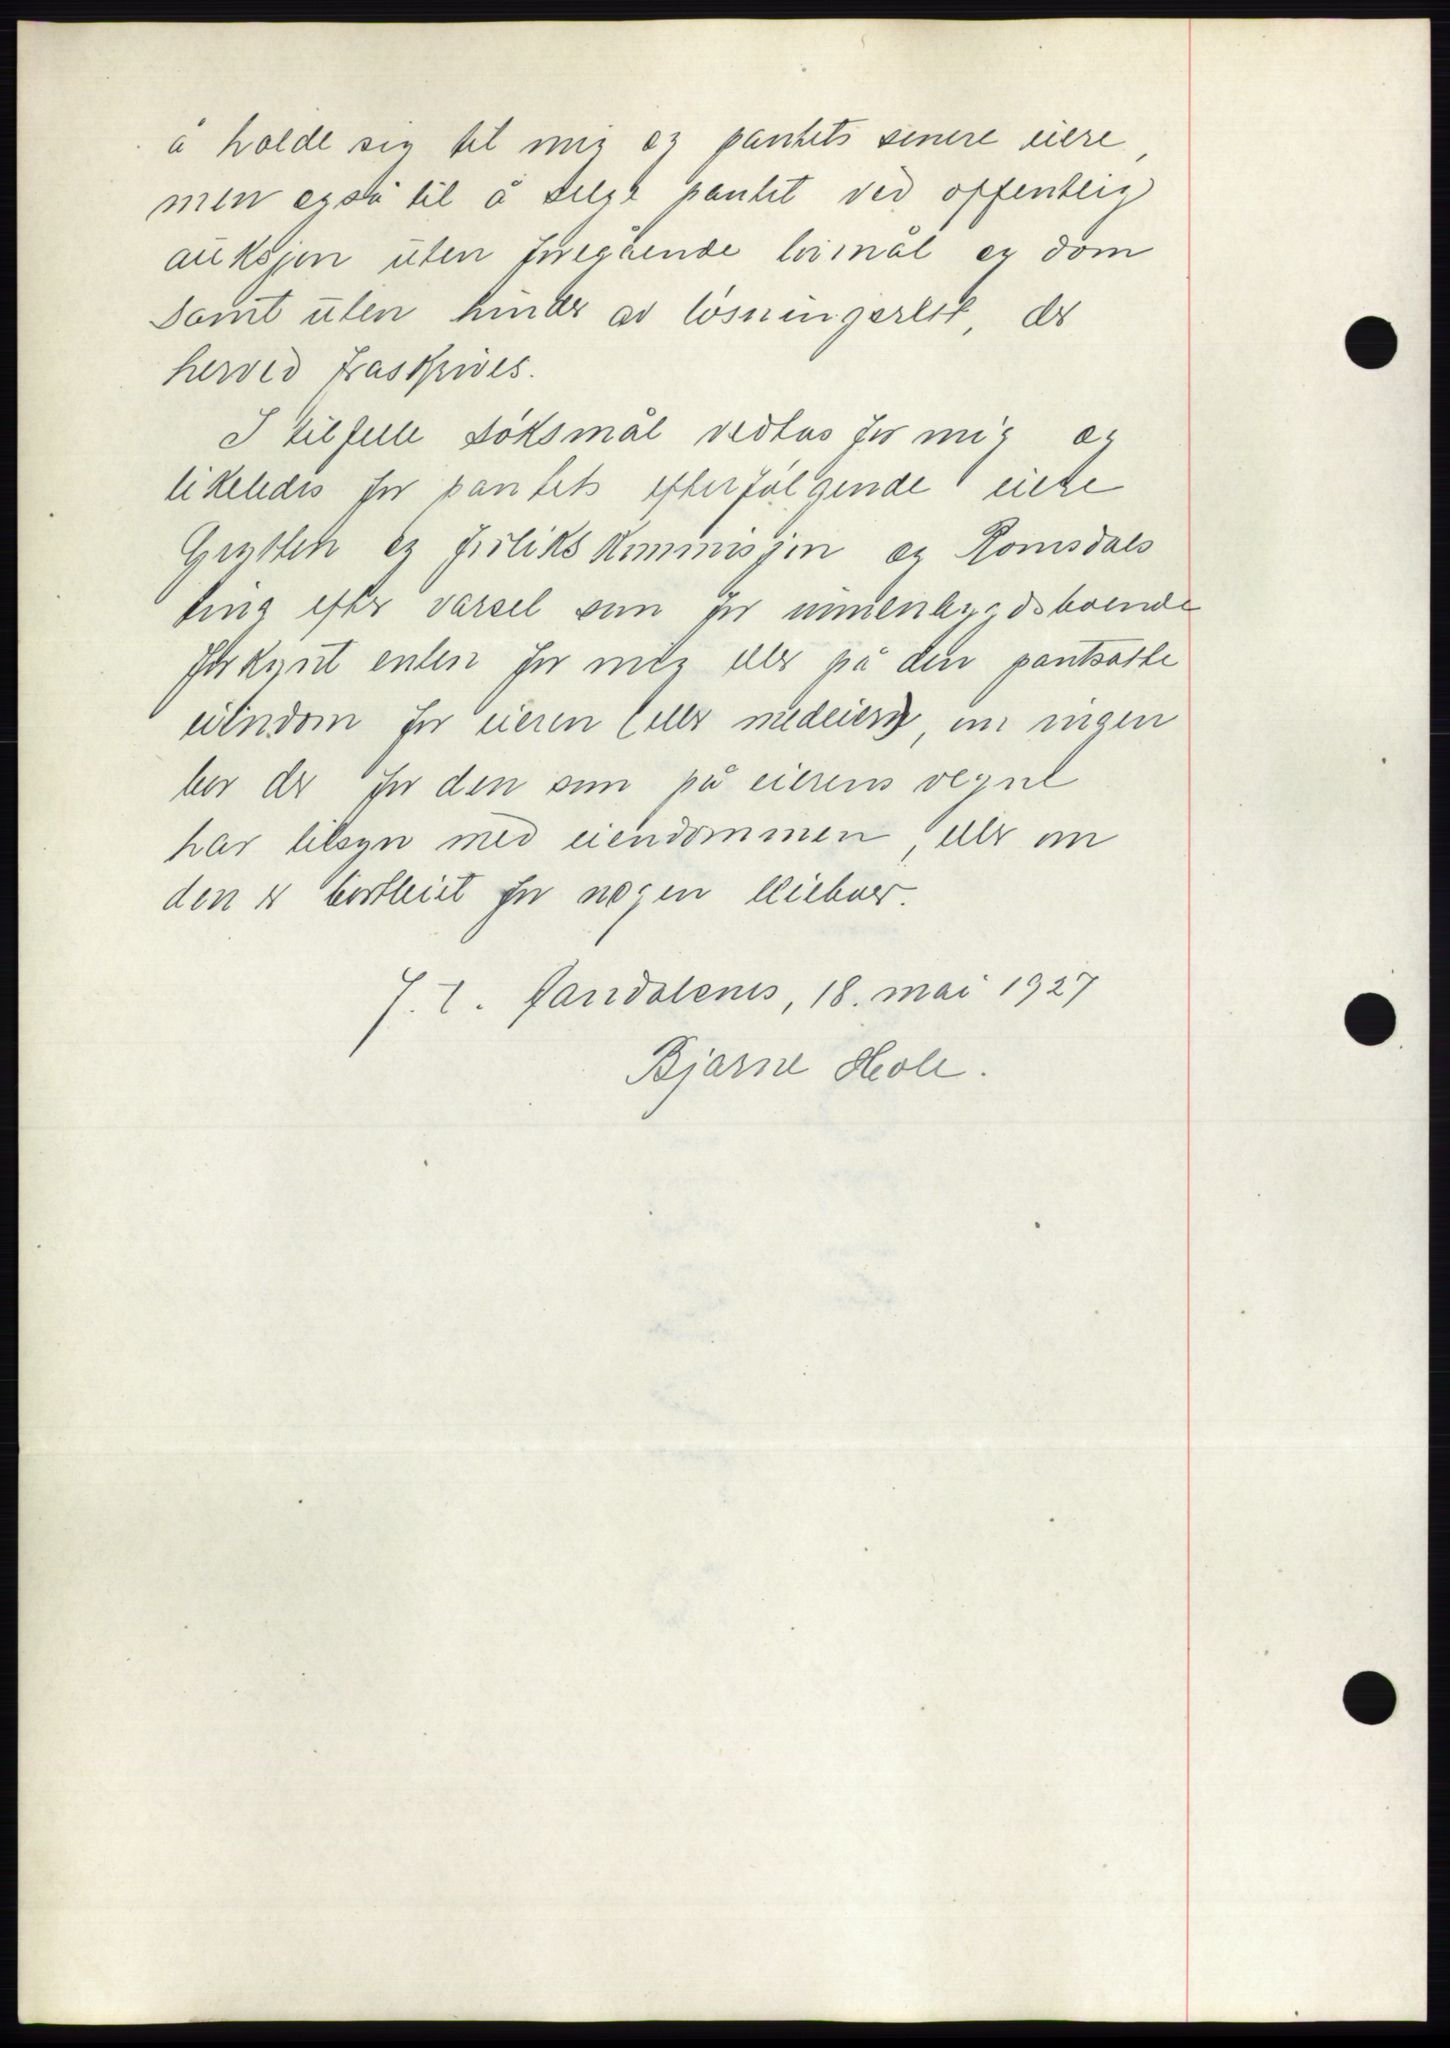 å holde sig til mig og pantets senere eiere,
men også til å selge pantet ved offentlig
auksjon uten foregående lovmål og dom
samt uten hinder av løsningsrett, der
herved fraskrives.
I tilfelle søksmål vedtas for mig og
likeledes for pantets efterfølgende eiere
Grytten og forliks kommisjon og Romsdals
ting efter varsel som for innenbygdsboende
forkynt enten for mig eller på den pantsatte
eiendom for eieren (eller medeiere), om ingen
bor der for den som på eierens vegne
har tilsyn med eiendommen, eller om
den er bortleiet for nogen leieboer.
p. t. Åndalsnes, 18. mai 1927
Bjarne Hole.